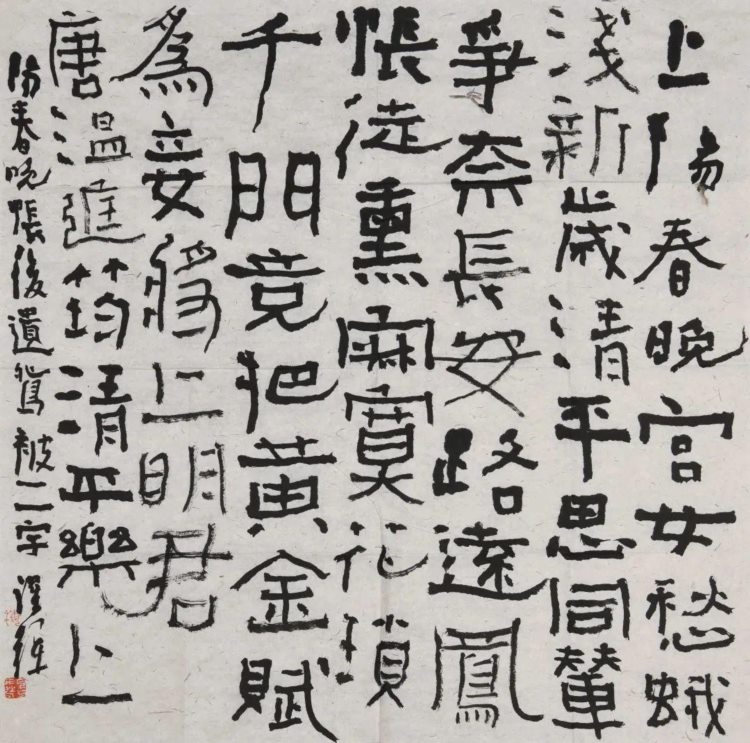 上陽春晚宮女愁蛾
淺新歲清平思同輦
爭奈長安路遠鳳
帳徒熏寂寞花瑣
千門竟把黃金賦
為妾將上明君
唐溫庭筠清平樂上
陽春晚帳後遺鴛被二字